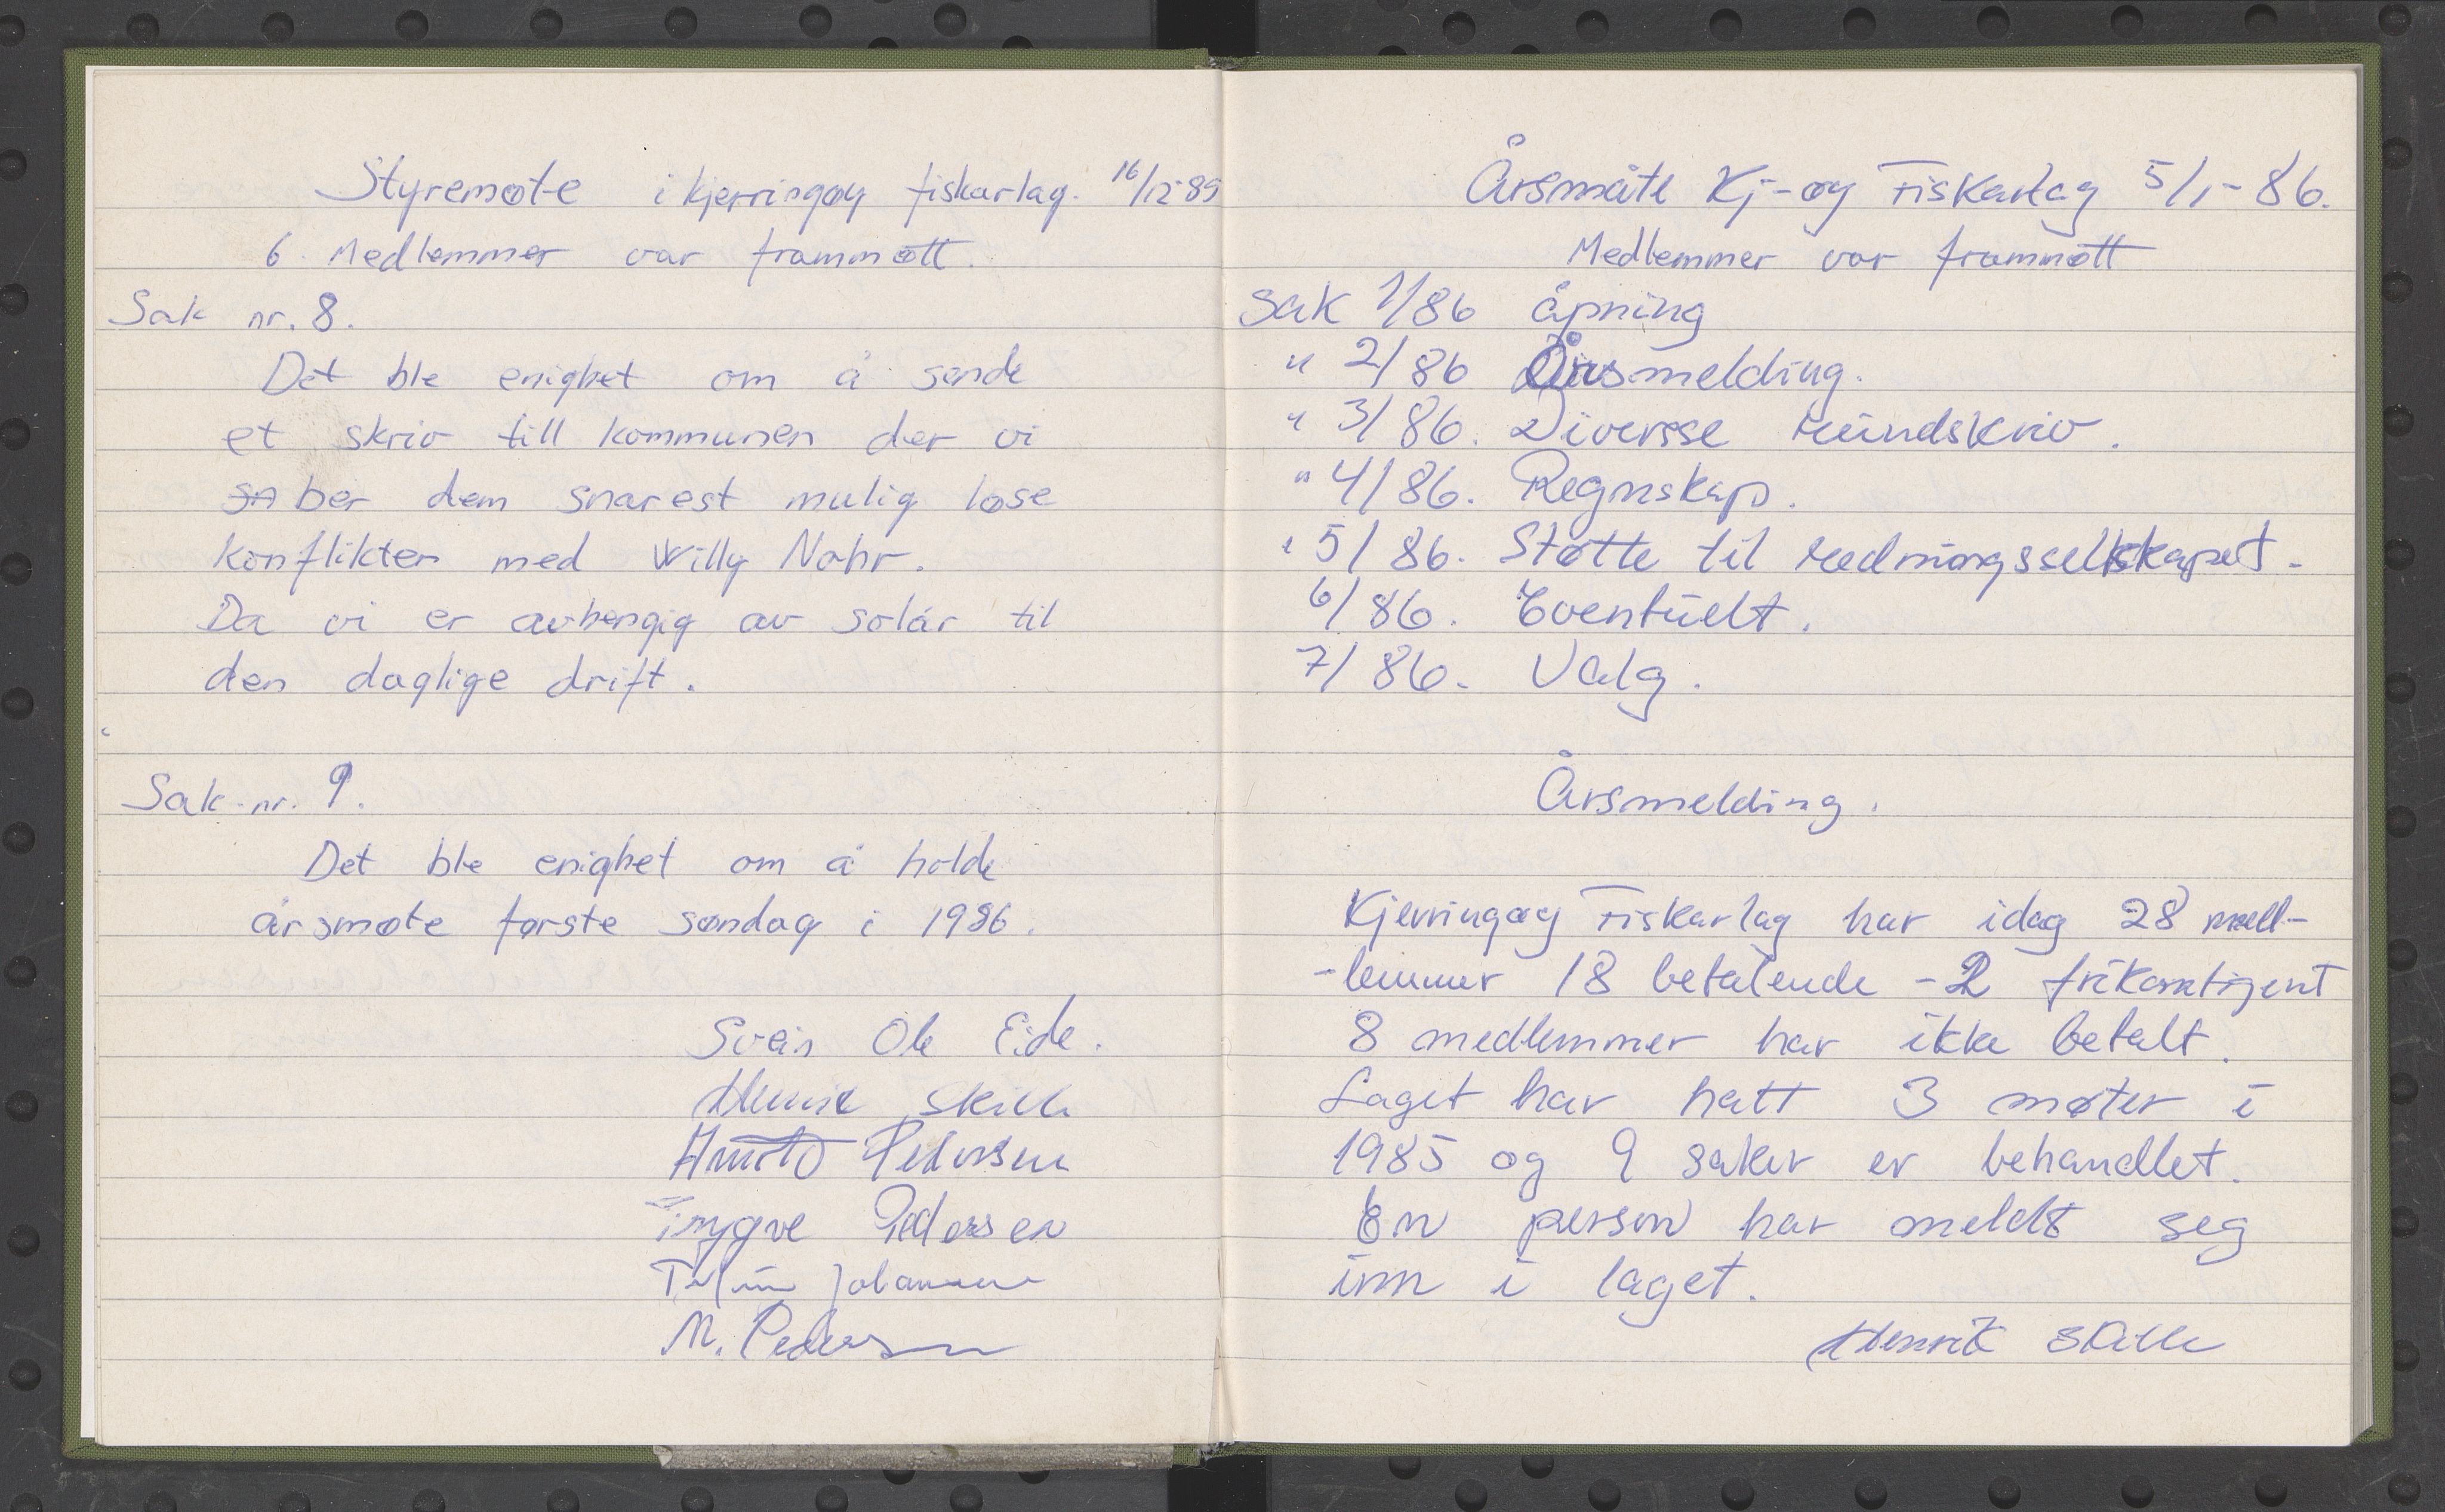 Styremøte i kjerringøy fiskarlag. 16/12-85
6 Medlemmer var frammøtt.
Sak nr. 8.
Det ble enighet om å sende
et skriv till kommunen der vi
ber dem snarest mulig løse
konflikten med Willy Nohr.
Da vi er avhengig av solar til
den daglige drift.
Sak nr. 9.
Det ble enighet om å holde
årsmøte første søndag i 1986.
Svein Ole Eide.
Henrik Skille
Pedersen
Trygve Pedersen
Johansen
M. Pedersen
Årsmøte Kj-øy Fiskarlag 5/1-86.
Medlemmer var frammøtt
Sak 1/86 åpning
" 2/86 Årsmelding.
" 3/86. Diversse Rundskriv.
" 4/86. Regnskap.
" 5/86. Støtte til Redningsselskapet.
6/86. Eventuelt.
7/86. Valg.
Årsmelding.
Kjerringøy Fiskarlag har idag 28 med-
-lemmer 18 betalende - 2 frikontigent
8 medlemmer har ikke betalt.
Laget har hatt 3 møter i
1985 og 9 saker er behandlet.
En person har meldt seg
inn i laget.
Henrik Skille